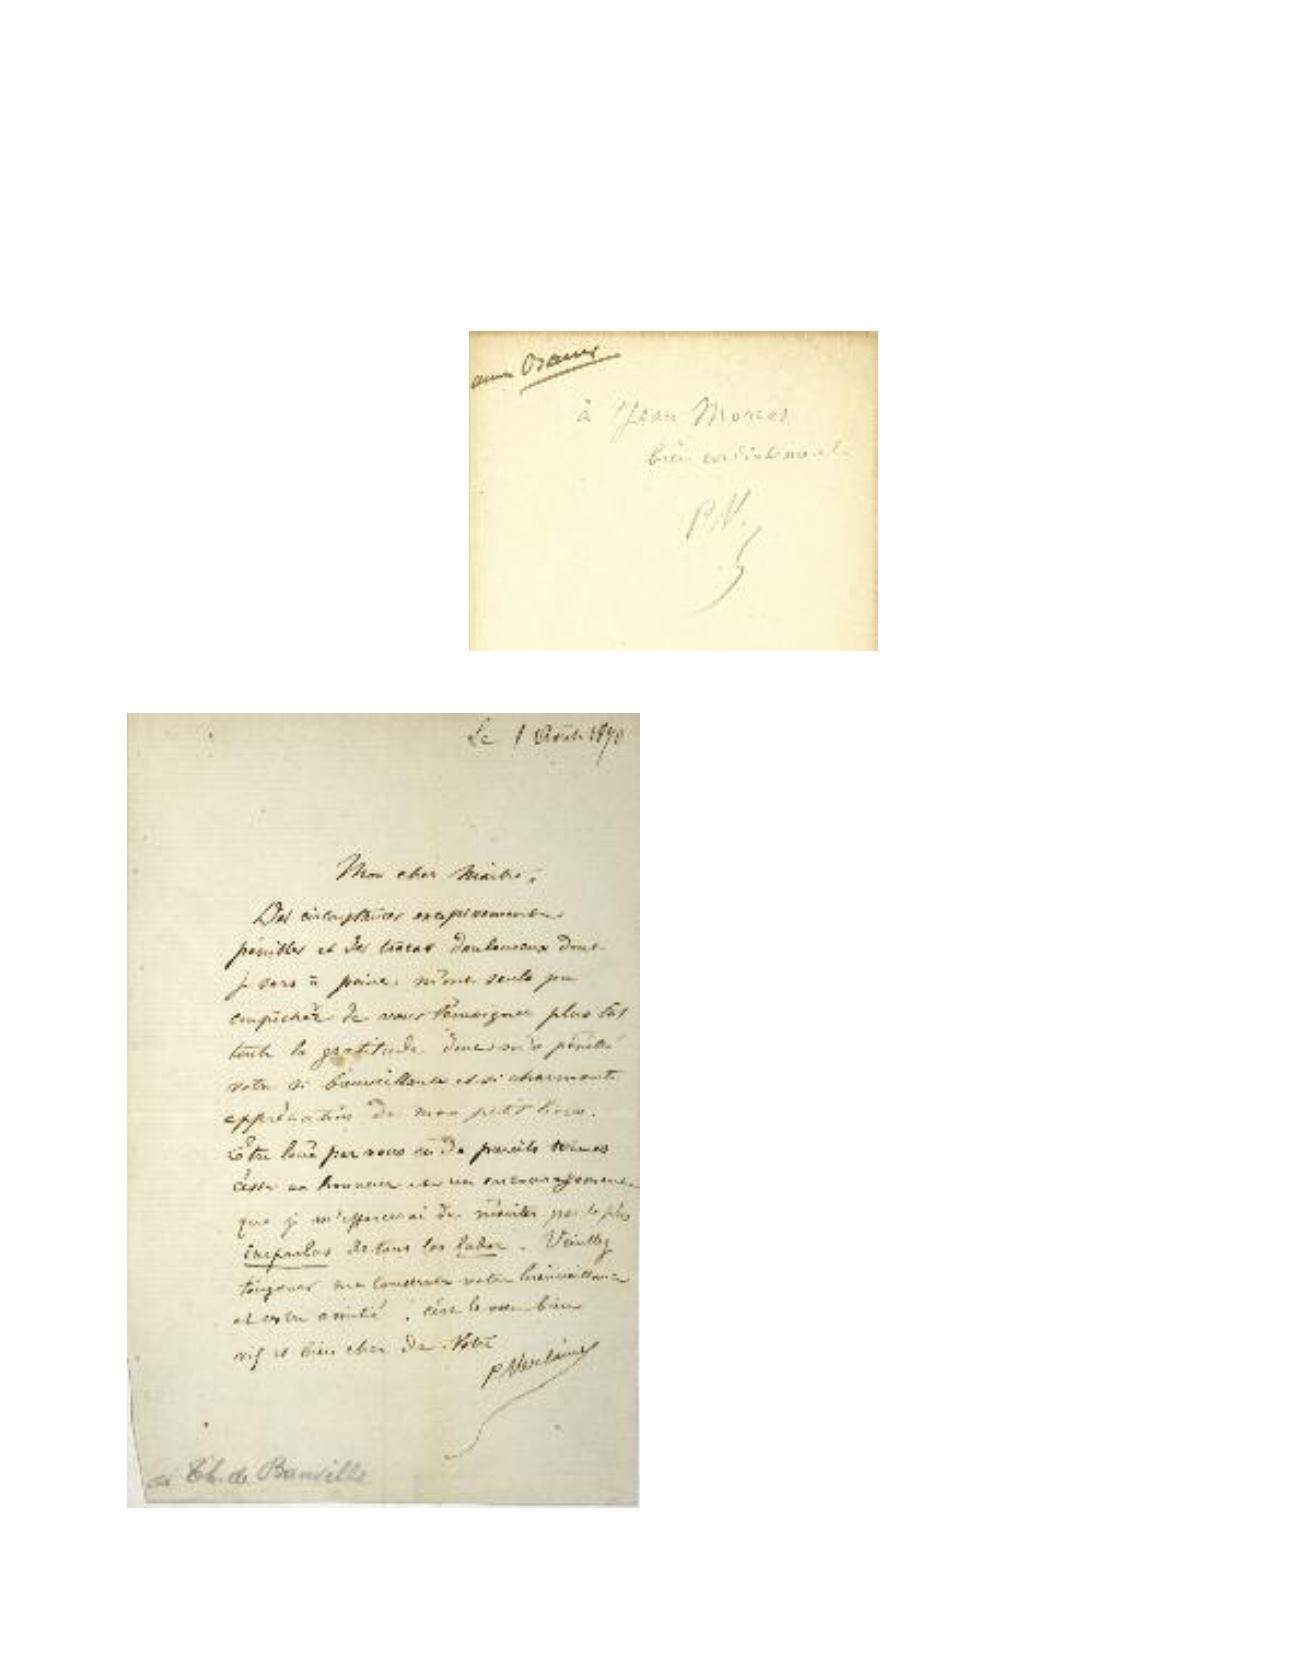 à Jean Moréas
bien cordialement
P.V.
Le 1 Août 1870
Mon cher Maître,
Des circonstances
pénibles et des tracas douloureux dont
je sors à peine, m'ont seuls pu
empêcher de vous témoigner plus tôt
toute la gratitude dont m'a pénétré
votre si bienveillante et si charmante
appréciation de mon petit livre.
Être loué par vous en de pareils termes
c'est un honneur et un encouragement
que je m'efforcerai de mériter par le plus
improbus de tous les labor. Veuillez
toujours me conserver votre bienveillance
et votre amitié, c'est le vœu bien
vif et bien cher de Votre
P. Verlaine
à Th. de Banville